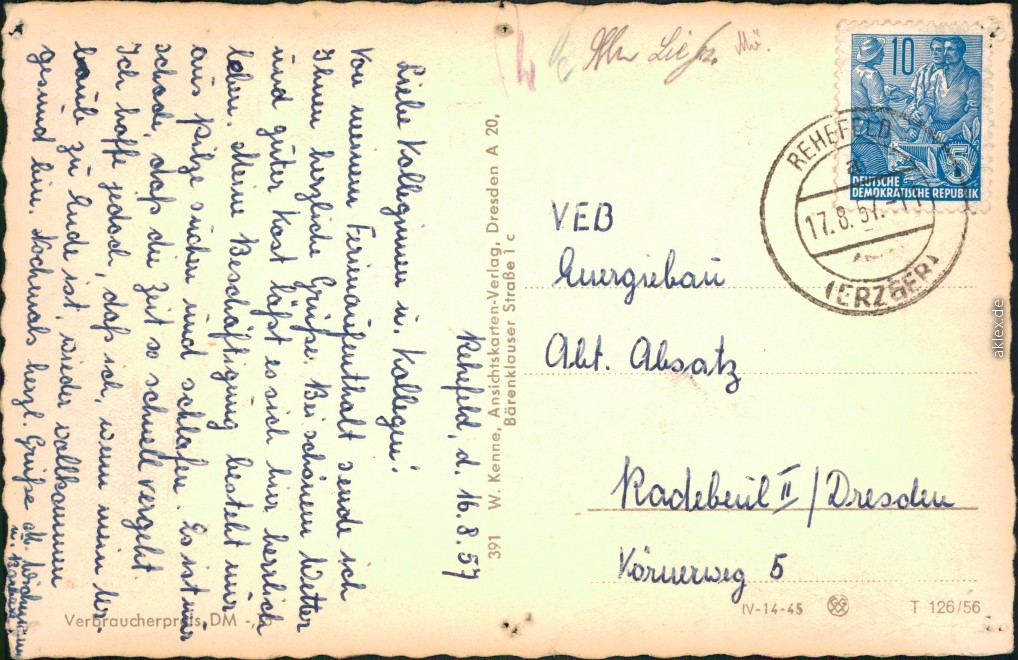 Rehefeld, d. 16.8.57
Liebe Kolleginnen u. Kollegen!
Von meinem Ferienaufenthalt sende ich
Ihnen herzliche Grüße. Bei schönem Wetter
und guter Kost läßt es sich hier herrlich
leben. Meine Beschäftigung besteht nur
aus Pilze suchen und schlafen. Es ist nur
schade, daß die Zeit so schnell vergeht.
Ich hoffe jedoch, daß ich, wenn mein Ur-
laub zu Ende ist, wieder vollkommen
gesund bin. Nochmals herzl. Grüße M.
Verbraucherpreis DM -,
391 W. Kenne, Ansichtskarten-Verlag, Dresden A 20,
Bärenklauser Straße 1 c
10
5
DEUTSCHE
DEMOKRATISCHE REPUBLIK
REHEFELD
a
17.8.57.-11
(ERZGEB)
VEB
Energiebau
Abt. Absatz
Radebeul II / Dresden
Körnerweg 5
IV-14-45
T 126/56
aklex.de